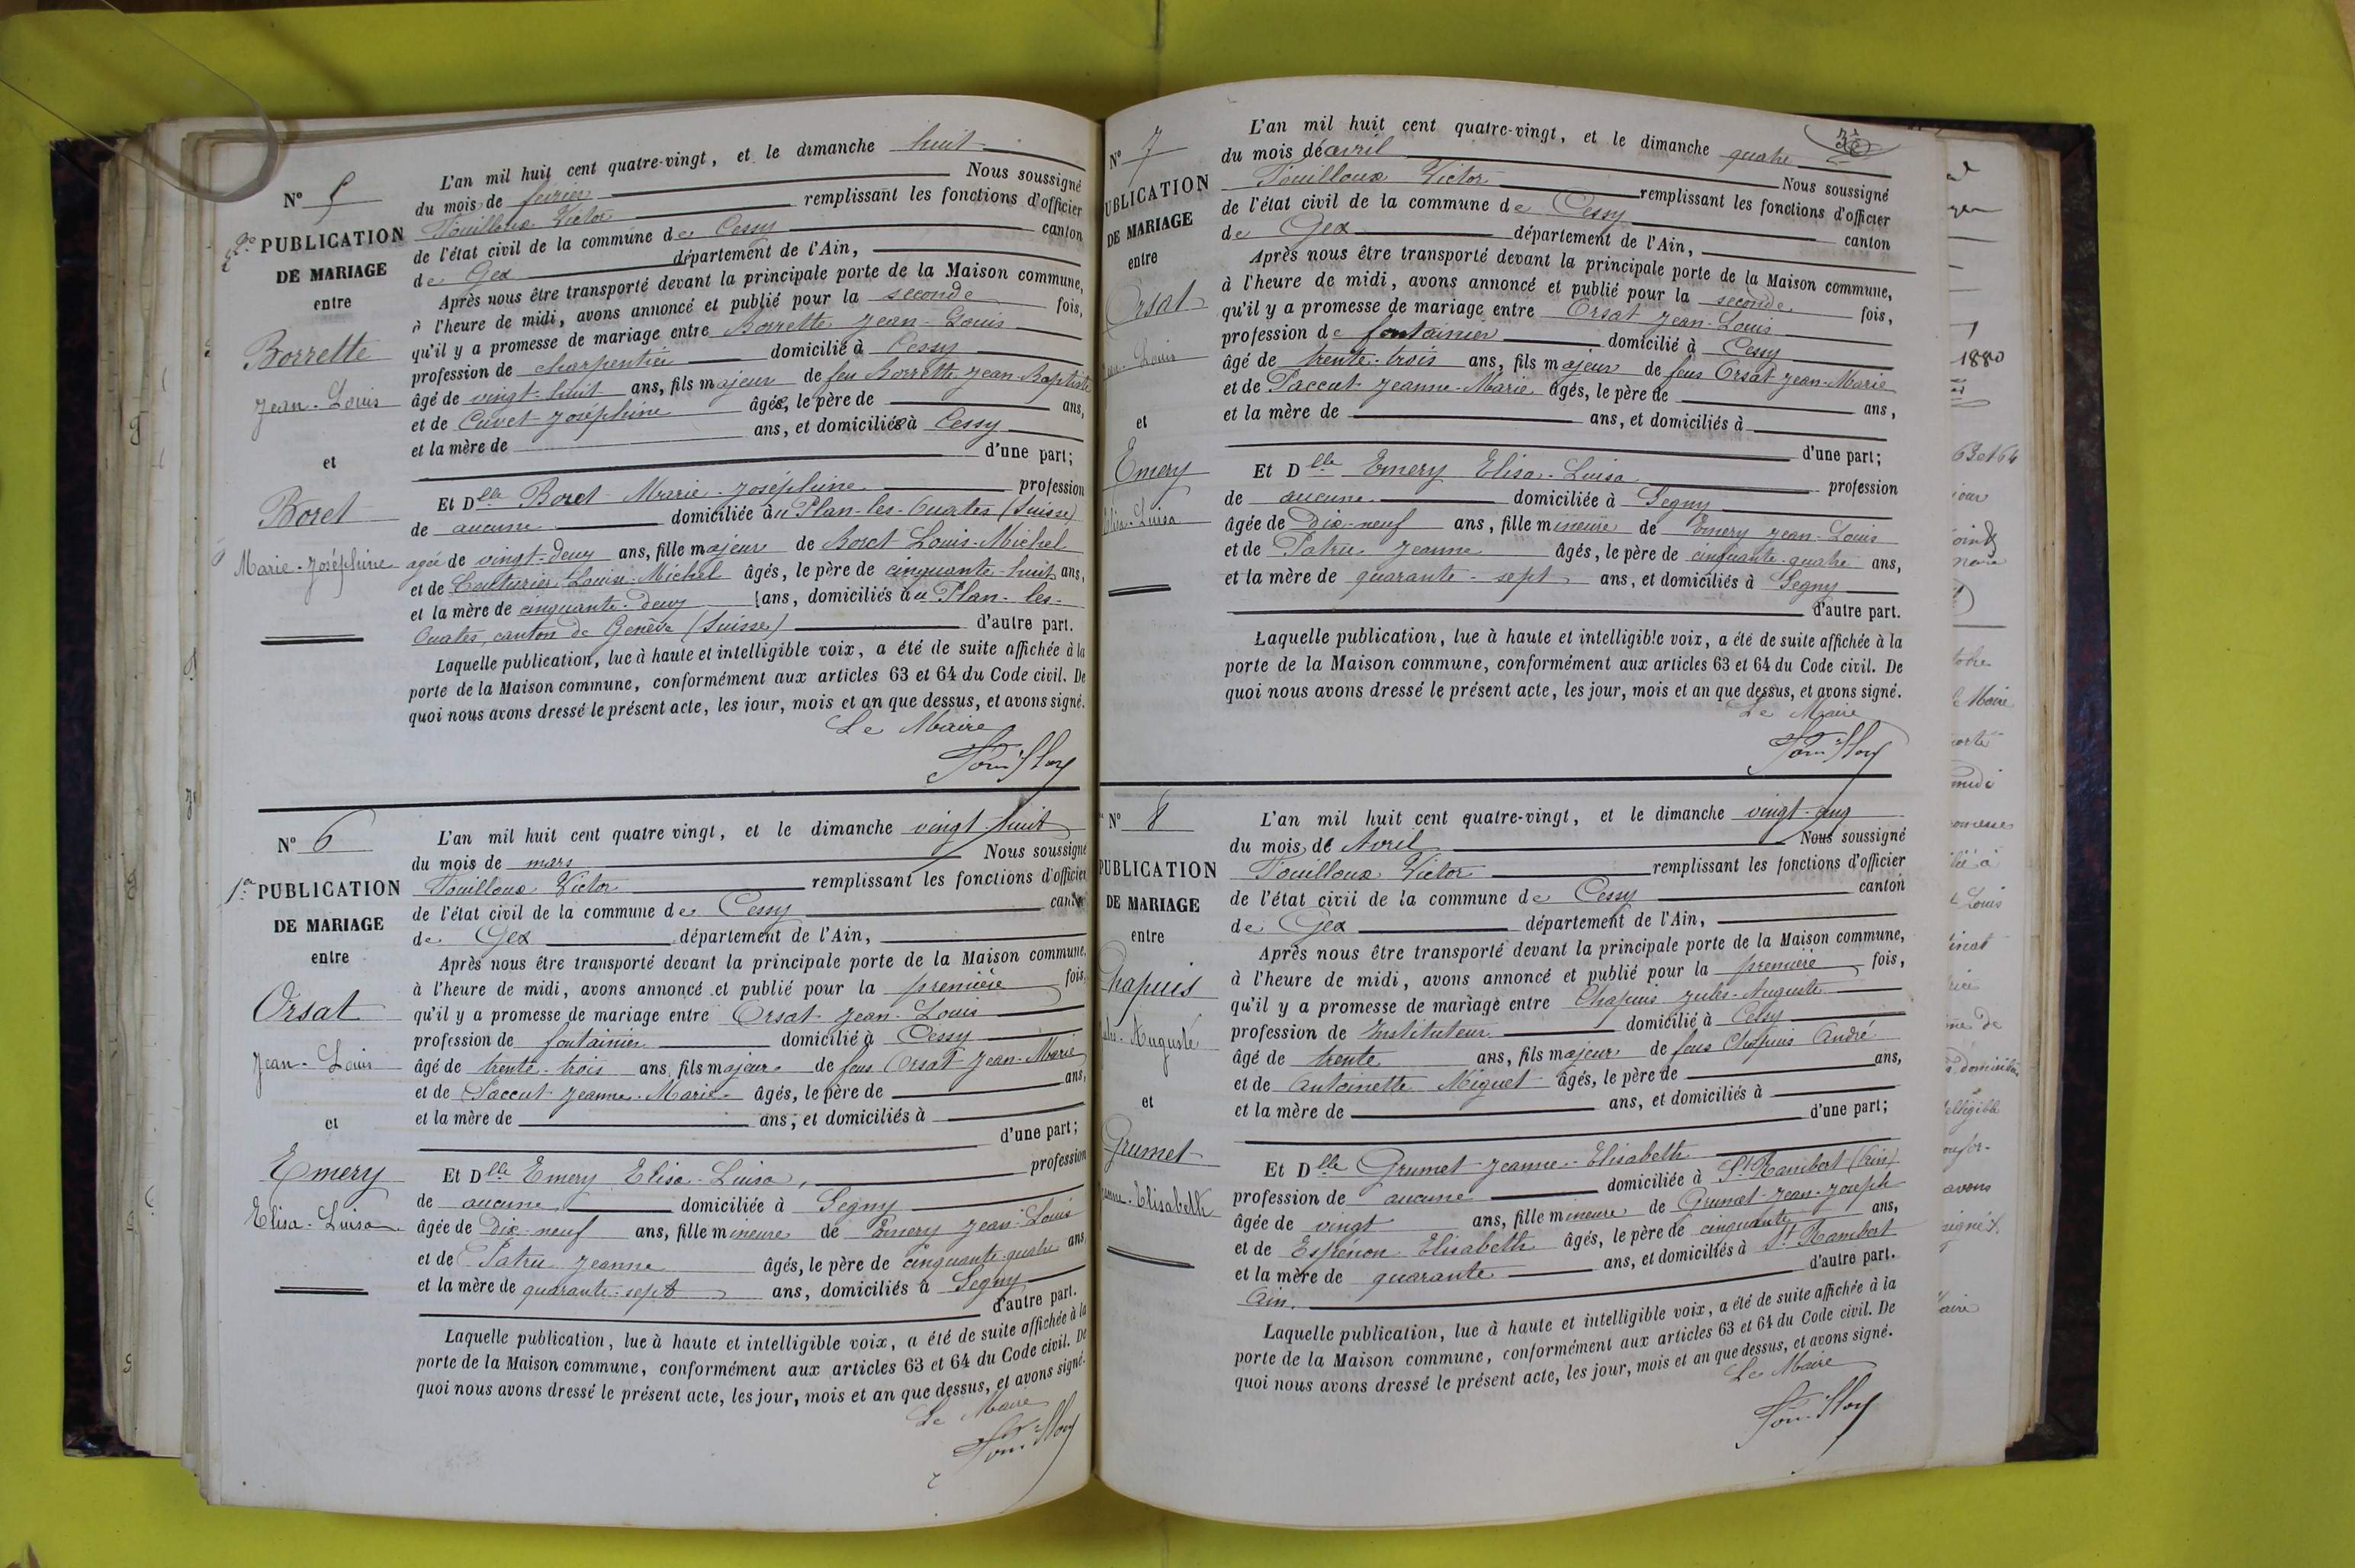 N° 5
2e PUBLICATION
DE MARIAGE
entre
Borrette
Jean-Louis
et
Boret
Marie-Joséphine
L'an mil huit cent quatre-vingt, et le dimanche huit
du mois de février Nous soussigné
Fouilloux Victor remplissant les fonctions d'officier
de l'état civil de la commune de Cessy canton
de Gex département de l'Ain,
Après nous être transporté devant la principale porte de la Maison commune,
à l'heure de midi, avons annoncé et publié pour la seconde fois,
qu'il y a promesse de mariage entre Borrette Jean-Louis
profession de charpentier domicilié à Cessy
âgé de vingt-huit ans, fils majeur de feu Borrette Jean-Baptiste
et de Cuvet Joséphine âgés, le père de ans,
et la mère de ans, et domiciliés à Cessy
d'une part;
Et Dlle Boret Marie-Joséphine profession
de aucune domiciliée au Plan-les-Ouates (Suisse)
agée de vingt-deux ans, fille majeure de Boret Louis-Michel
et de Couturier Louise-Michel âgés, le père de cinquante-huit ans,
et la mère de cinquante-deux ans, domiciliés au Plan-les-
Ouates, canton de Genève (Suisse) d'autre part.
Laquelle publication, lue à haute et intelligible voix, a été de suite affichée à la
porte de la Maison commune, conformément aux articles 63 et 64 du Code civil. De
quoi nous avons dressé le présent acte, les jour, mois et an que dessus, et avons signé.
Le Maire
N° 6
1re PUBLICATION
DE MARIAGE
entre
Orsat
Jean-Louis
et
Emery
Elisa-Luisa
L'an mil huit cent quatre vingt, et le dimanche vingt huit
du mois de mars Nous soussigné
Fouilloux Victor remplissant les fonctions d'officier
de l'état civil de la commune de Cessy canton
de Gex département de l'Ain,
Après nous être transporté devant la principale porte de la Maison commune,
à l'heure de midi, avons annoncé et publié pour la première fois,
qu'il y a promesse de mariage entre Orsat Jean-Louis
profession de fontainier domicilié à Cessy
âgé de trente-trois ans, fils majeur de feus Orsat Jean-Marie
et de Paccut Jeanne-Marie âgés, le père de ans,
et la mère de ans, et domiciliés à
d'une part;
Et Dlle Emery Elisa-Luisa, profession
de aucune domiciliée à Segny
âgée de Dix-neuf ans, fille mineure de Emery Jean-Louis
et de Patru Jeanne âgés, le père de cinquante-quatre ans,
et la mère de quarante-sept ans, domiciliés à Segny
d'autre part.
Laquelle publication, lue à haute et intelligible voix, a été de suite affichée à la
porte de la Maison commune, conformément aux articles 63 et 64 du Code civil. De
quoi nous avons dressé le présent acte, les jour, mois et an que dessus, et avons signé.
Le Maire
N° 7
UBLICATION
DE MARIAGE
entre
Orsat
Louis
et
Emery
Luisa
L'an mil huit cent quatre-vingt, et le dimanche quatre
du mois de avril Nous soussigné
Fouilloux Victor remplissant les fonctions d'officier
de l'état civil de la commune de Cessy canton
de Gex département de l'Ain,
Après nous être transporté devant la principale porte de la Maison commune,
à l'heure de midi, avons annoncé et publié pour la seconde fois,
qu'il y a promesse de mariage entre Orsat Jean-Louis
profession de fontainier domicilié à Cessy
âgé de trente-trois ans, fils majeur de feus Orsat Jean-Marie
et de Paccut Jeanne-Marie âgés, le père de ans,
et la mère de ans, et domiciliés à
d'une part;
Et Dlle Emery Elisa-Luisa profession
de aucune domiciliée à Segny
âgée de Dix-neuf ans, fille mineure de Emery Jean-Louis
et de Patru Jeanne âgés, le père de cinquante-quatre ans,
et la mère de quarante-sept ans, et domiciliés à Segny
d'autre part.
Laquelle publication, lue à haute et intelligible voix, a été de suite affichée à la
porte de la Maison commune, conformément aux articles 63 et 64 du Code civil. De
quoi nous avons dressé le présent acte, les jour, mois et an que dessus, et avons signé.
Le Maire
N° 8
PUBLICATION
DE MARIAGE
entre
Chapuis
Auguste
et
Grumet
Elisabeth
L'an mil huit cent quatre-vingt, et le dimanche vingt-cinq
du mois de Avril Nous soussigné
Fouilloux Victor remplissant les fonctions d'officier
de l'état civil de la commune de Cessy canton
de Gex département de l'Ain,
Après nous être transporté devant la principale porte de la Maison commune,
à l'heure de midi, avons annoncé et publié pour la première fois,
qu'il y a promesse de mariage entre Chapuis Jules-Auguste
profession de Instituteur domicilié à Cessy
âgé de trente ans, fils majeur de feus Chapuis André
et de Antoinette Miguet âgés, le père de ans,
et la mère de ans, et domiciliés à
d'une part;
Et Dlle Grumet Jeanne-Elisabeth
profession de aucune domiciliée à St Rambert (Ain)
âgée de vingt ans, fille mineure de Grumet Jean-Joseph
et de Espénon Elisabeth âgés, le père de cinquante ans,
et la mère de quarante ans, et domiciliés à St Rambert
Ain. d'autre part.
Laquelle publication, lue à haute et intelligible voix, a été de suite affichée à la
porte de la Maison commune, conformément aux articles 63 et 64 du Code civil. De
quoi nous avons dressé le présent acte, les jour, mois et an que dessus, et avons signé.
Le Maire
1880
63 et 64
Maire
midi
Louis
avons